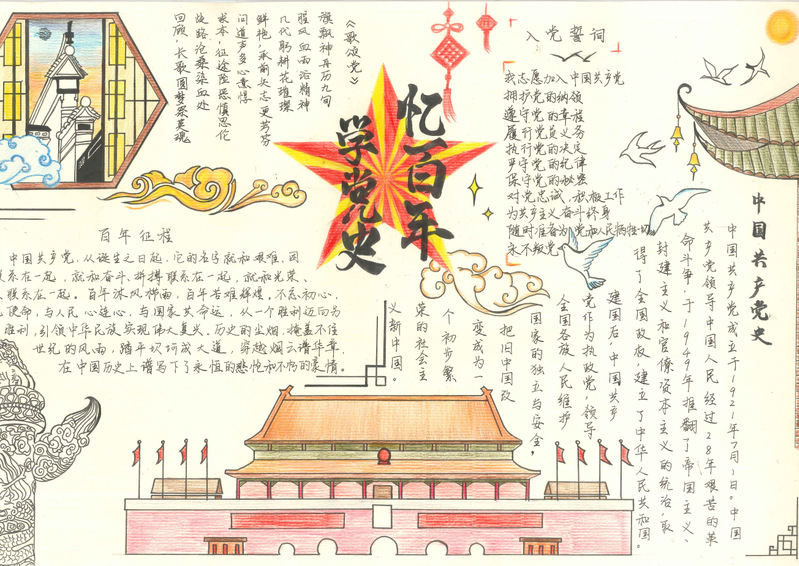 忆百年
学党史
《歌颂党》
旗飘神舟历九旬
腥风血雨浴精神
几代躬耕花璀璨
鲜艳,承前矢志更芬芳
问道声多心
求本,征途险恶慎思伦
岐路沧桑染血处
回顾,长歌圆梦祭英魂
入党誓词
我志愿加入中国共产党
拥护党的纲领
遵守党的章程
履行党员义务
执行党的决定
严守党的纪律
保守党的秘密
对党忠诚,积极工作
为共产主义奋斗终身
随时准备为党和人民牺牲一切
永不叛党
百年征程
中国共产党,从诞生之日起,它的名字就和艰难、困
联系在一起,就和奋斗、拼搏联系在一起,就和光荣、
联系在一起。百年沐风栉雨,百年苦难辉煌,不忘初心,
使命,与人民心连心,与国家共命运,从一个胜利迈向另
胜利,引领中华民族实现伟大复兴,历史的尘烟,掩盖不住
世纪的风雨,踏平坎坷成大道,穿越烟云谱华章,
在中国历史上谱写下了永恒的悲怆和不朽的豪情。
中国共产党史
中国共产党成立于1921年7月1日。中国
共产党领导中国人民经过28年艰苦的革
命斗争,于1949年推翻了帝国主义、
封建主义和官僚资本主义的统治,取
得了全国政权,建立了中华人民共和国。
建国后,中国共产
党作为执政党,领导
全国各族人民维护
国家的独立与安全,
把旧中国改
变成为一
个初步繁
荣的社会主
义新中国。